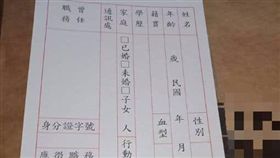 姓名
性別
年齡 歲 民國 年 月
籍貫
血型
學歷
家庭 □已婚□未婚□子女 人
行動
通訊處
曾任
職務
身分證字號
應徵職務